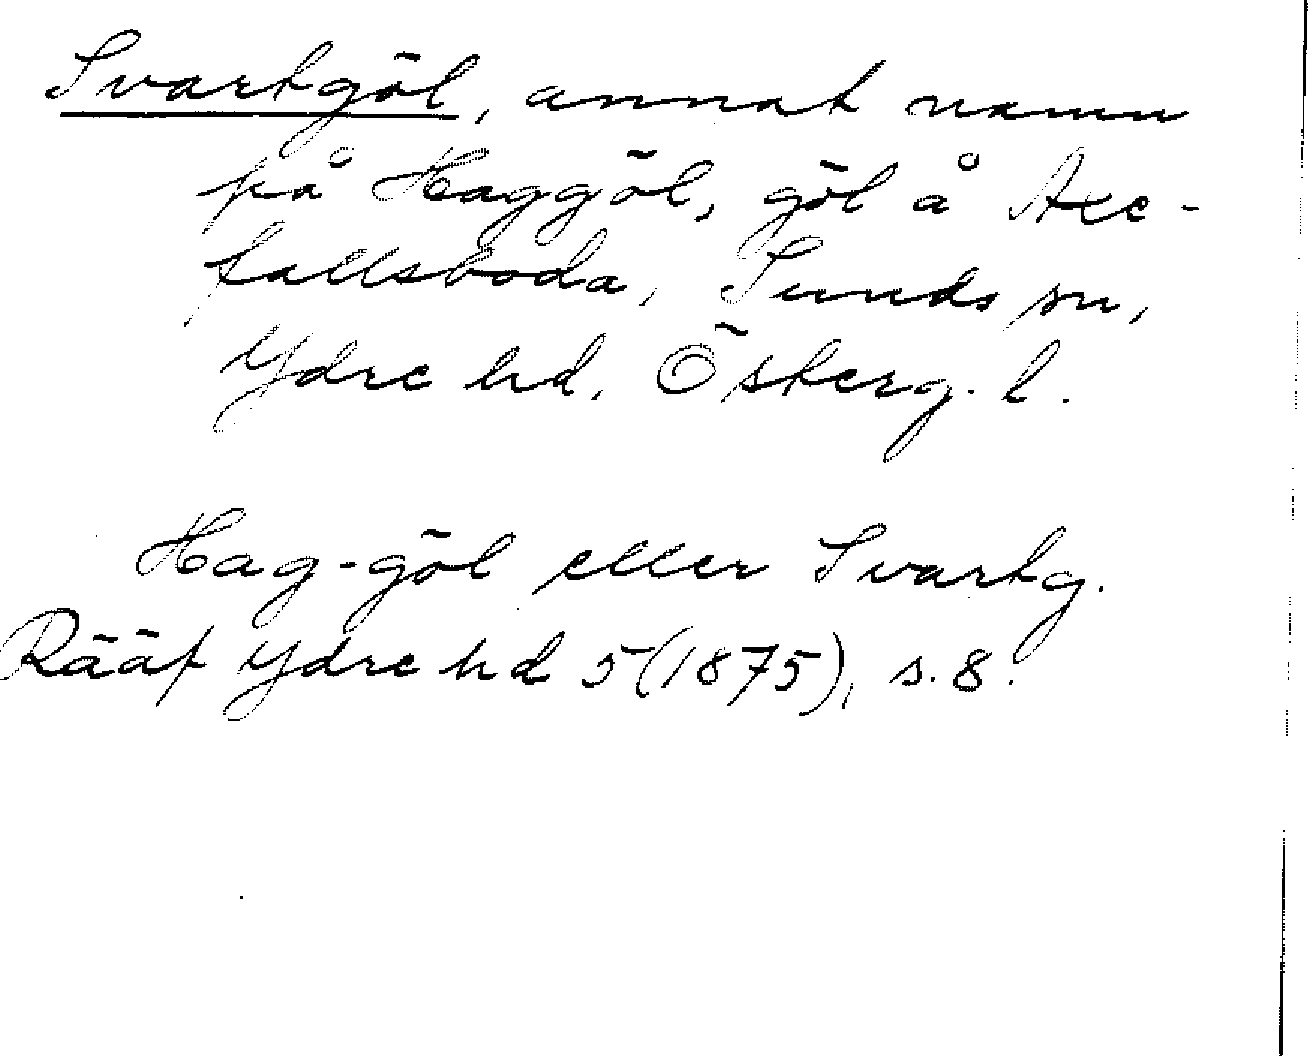 Svartgöl, annat namn
på Haggöl, göl å
fallsboda, Sunds sn,
Ydre hd. Österg. l.
Hag-göl eller Svartg.
Rääf Ydre hd 5 (1875), s. 8.